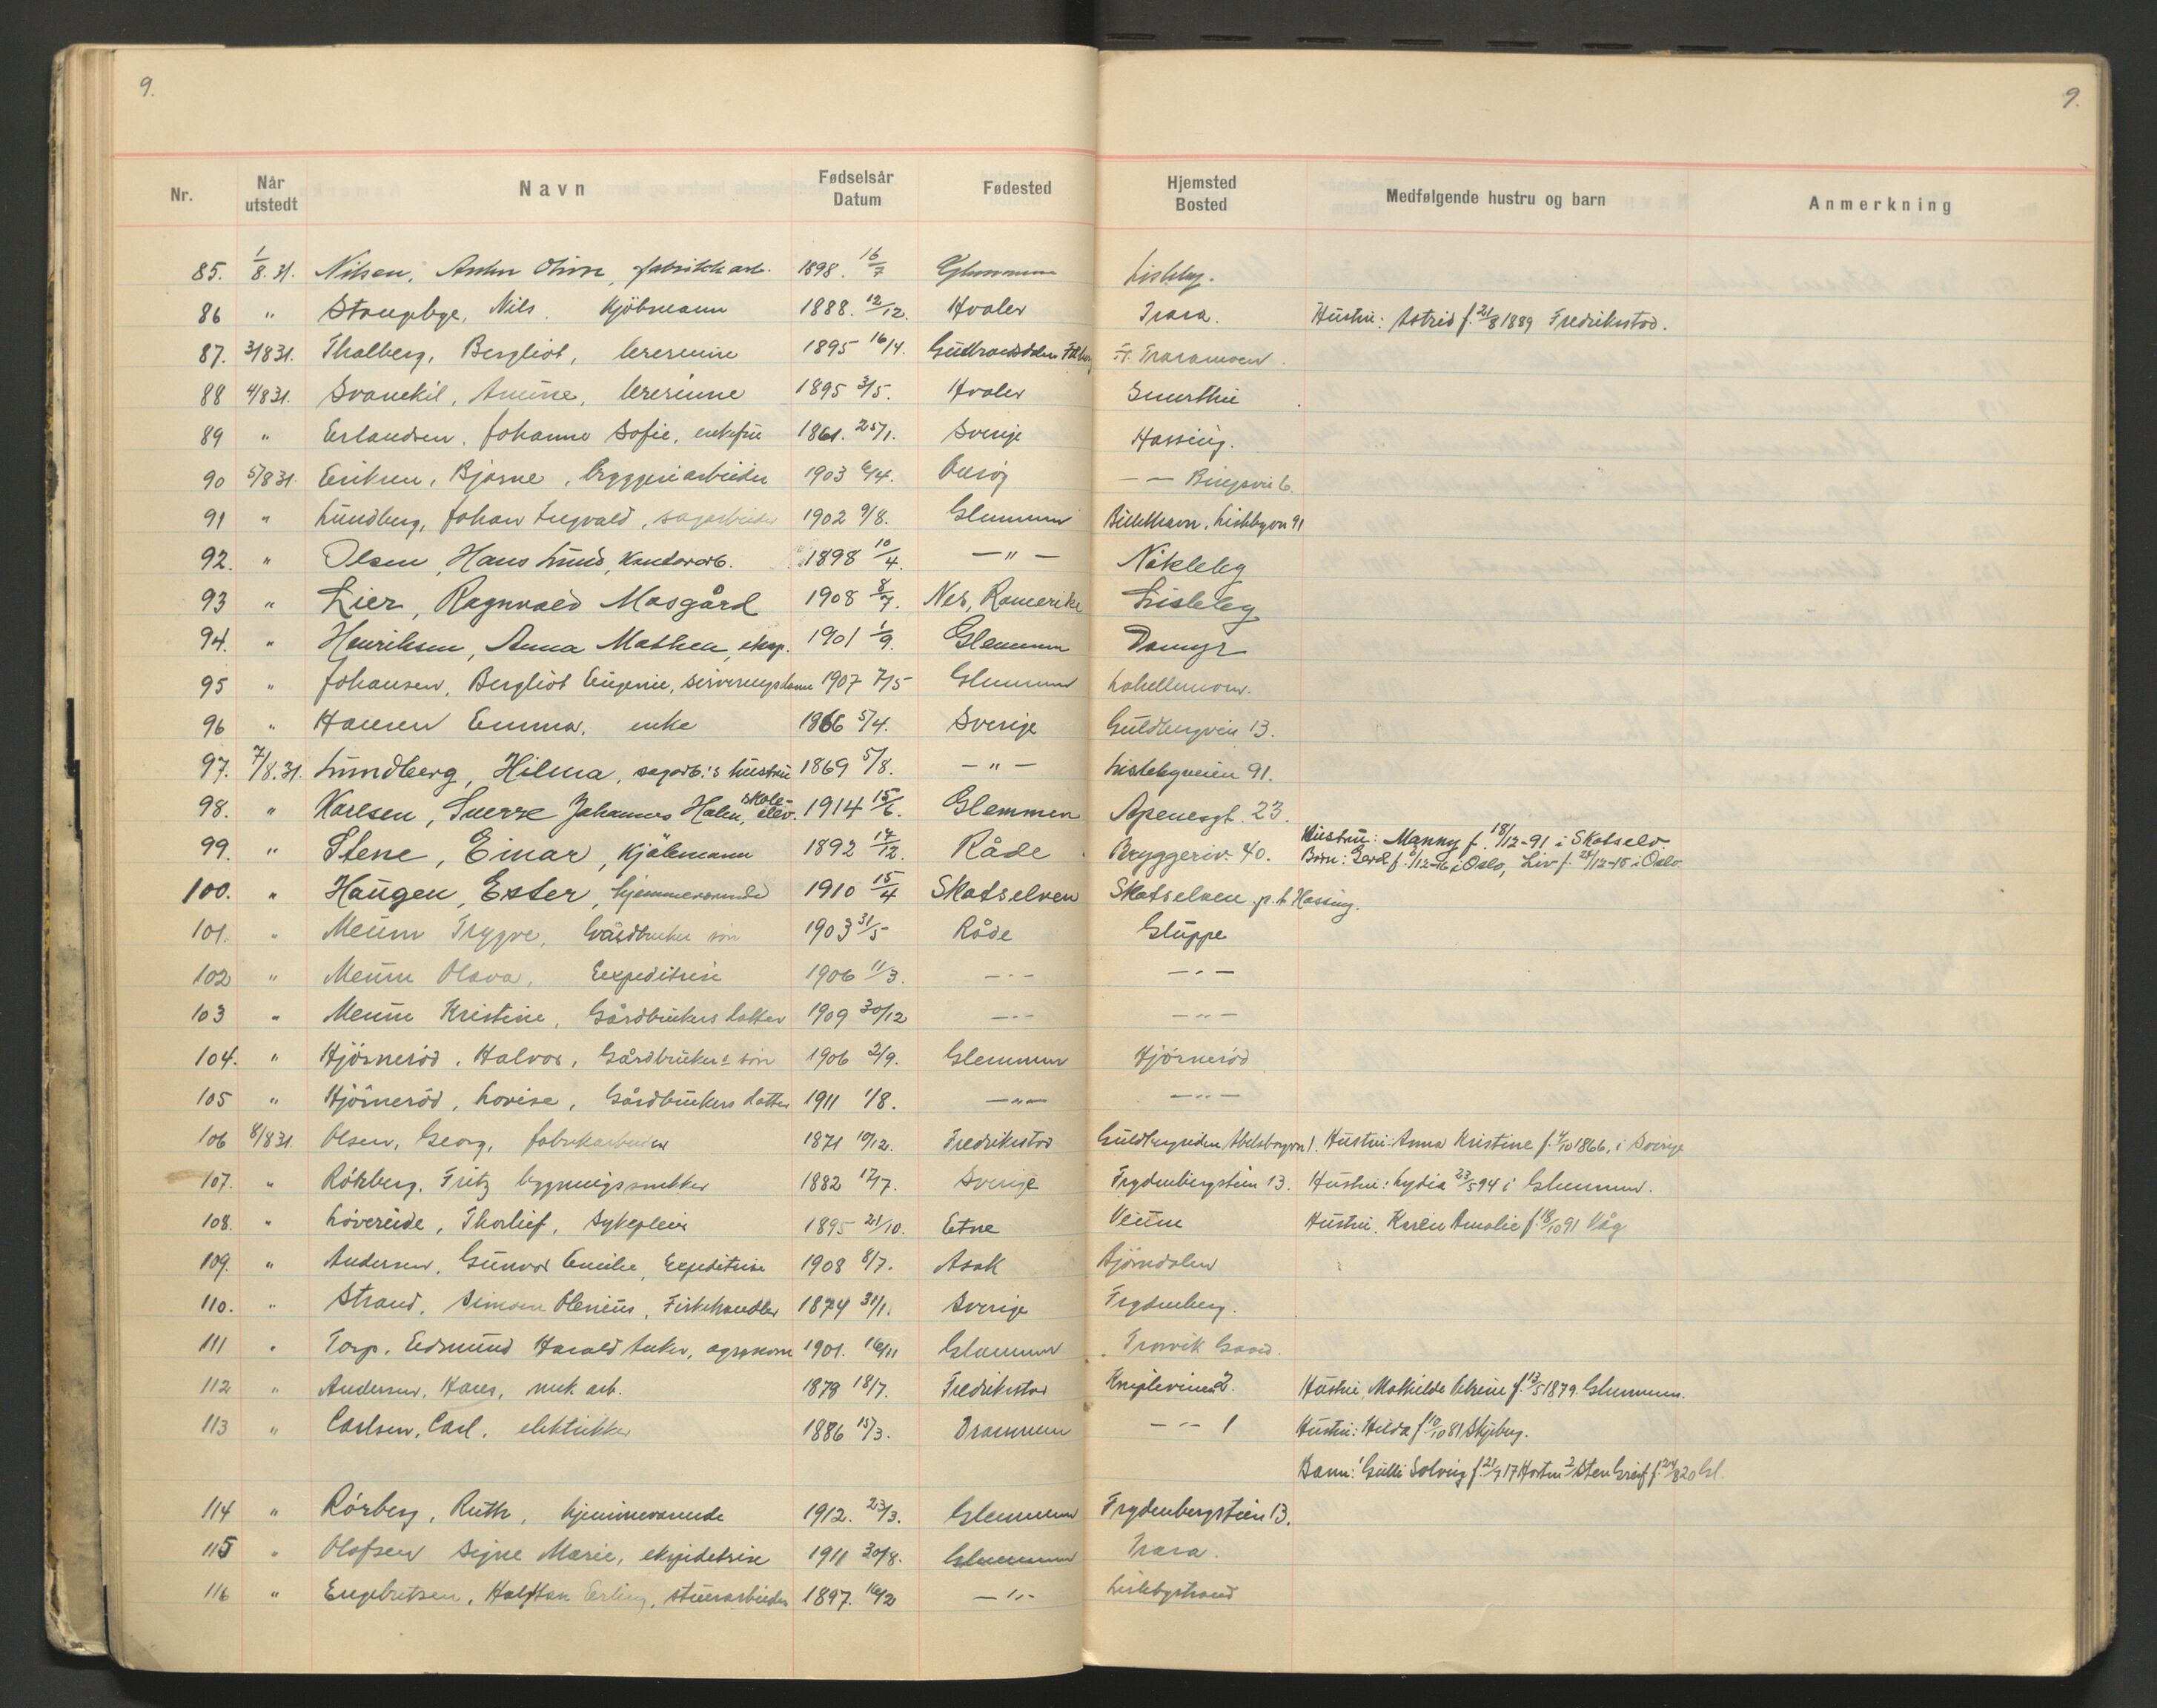 9.
9.
Nr. Når utstedt Navn Fødselsår Datum Fødested Hjemsted Bosted Medfølgende hustru og barn Anmerkning
85. 1/8.31. Nilsen, Oliver, fabrikk arb. 1898. 16/7 Glemmen Lisleby.
86 " Stangebye, Nils. Kjöbmann 1888. 12/12. Hvaler Trara. Hustru: Astrid f. 21/8 1889 Fredrikstad.
87. 3/8 31. Thalberg, Bergliot, lærerinne 1895 16/4. Gudbrandsdalen Traramoen.
88 4/8 31. Svanekil, lærerinne 1895 3/5. Hvaler
89 " Erlandsen, Johanne Sofie, enkefru 1861. 25/1. Sverige Hassing.
90 5/8 31. Eriksen, Bjarne, bryggeriarbeider 1903 6/4. Onsöy — —
91 " Lundberg, Johan Ingvald, sagarbeider 1902 9/8. Glemmen Lislebyvn 91
92. " Olsen, Hans Lund, kontorarb. 1898 10/4. — " — Nökleby
93 " Lier, Ragnvald Mosgård 1908 8/7. Nes, Romerike Lisleby
94. " Henriksen, Anna Mathea, eksp. 1901 1/9. Glemmen Damyr
95 " Johansen, Bergliot Eugenie, serveringsdame 1907 7/5 Glemmen Lahellemoen.
96 " Hansen Emma, enke 1866 5/4. Sverige Guldbergveien 13.
97. 7/8.31. Lundberg, Hilma, sagarb.'s hustru 1869 5/8. — " — Lislebyveien 91.
98. " Karlsen, Sverre Johannes Holm, skole-elev. 1914 15/6. Glemmen Apenesgt. 23.
99. " Stene, Einar, Kjøbmann 1892 17/12. Råde Bryggeriv. 40. Hustru: Manny f. 18/12-91 i Skotselv.
Barn: Gerd f. /12-16 i Oslo, Liv f. 28/12-18 i Oslo
100. " Haugen, Ester, hjemmeværende 1910 15/4 Skotselven Skotselven p.t. Hassing.
101. " Meum Trygve, Gårdbruker sön 1903 31/5 Råde Gluppe
102 " Meum Olava, Expeditrise 1906 11/3. — " — — " —
103 " Meum Kristine, Gårdbrukers datter 1909 30/12 — " — — " —
104. " Hjörneröd, Halvor, Gårdbrukers sön 1906 2/9. Glemmen Hjörneröd
105 " Hjörneröd, Lovise, Gårdbrukers datter 1911 1/8. — " — — " —
106 8/8 31. Olsen, Georg, fabrikarbeider 1871 10/12. Fredrikstad Hustru: Anna Kristine f. 4/10 1866, i Sverige
107. " Rörberg, Fritz bygningssnekker 1882 17/7. Sverige Frydenbergstien 13. Hustru: Lydia 23/5 94 i Glemmen.
108. " Lövereide, Thorlief, Sykepleier 1895 21/10. Etne Veum Hustru. Karen Amalie f. 18/10 91 Våg
109. " Andersen, Gunvor Emilie, Expeditrise 1908 8/7. Asak Björndalen
110. " Strand, Simon Olenius, Fiskehandler 1874 31/1. Sverige Frydenberg.
111 " Torp, Edmund Harald Anker, agronom 1901. 16/11 Glemmen Trosvik Gaard.
112 " Andersen, Hans, mek. arb. 1878 18/7. Fredrikstad Knipleveien 2. Hustru, Mathilde f. 13/5 1879. Glemmen.
113 " Carlsen, Carl, elektrikker 1886 15/3. Drammen — " — 1 Hustru: Hilda f 10/10 81 Skjeberg.
Barn: Gulli Solveig f. 21/9 17 Horten f. 24/8 20 Gl.
114 " Rörberg, Ruth, hjemmeværende 1912. 23/3. Glemmen Frydenbergstien 13.
115 " Olafsen Signe Marie, ekspeditrise 1911 30/8. Glemmen Trara.
116 " Engebretsen, Halfdan Erling, stuerarbeider 1897. 16/2 — " — Lislebystrand